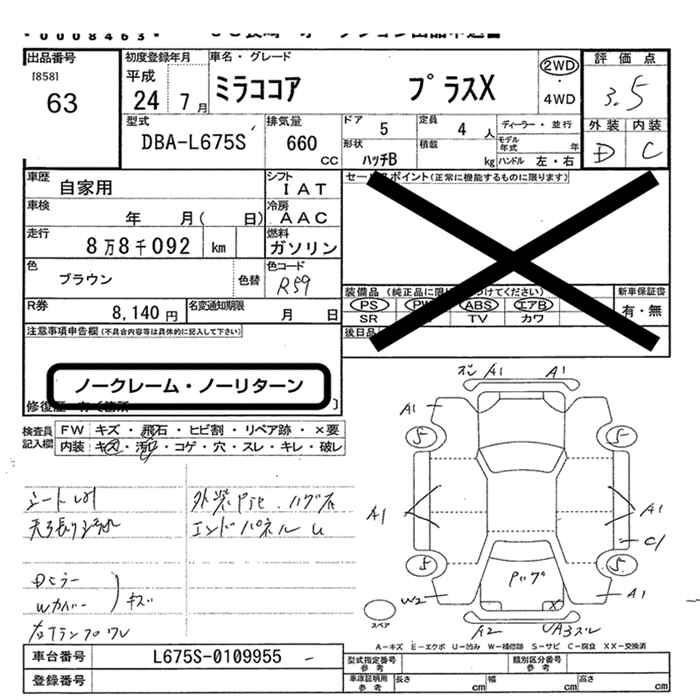 *0008463*
出品番号
[858]
63
初度登録年月
平成
24 7月
車名・グレード
ミラココア プラスX
2WD
・
4WD
評価点
3.5
外装 内装
D C
型式
DBA-L675S
排気量
660
CC
ドア
5
定員
4 人
ディーラー・並行
モデル年式 年
形状
ハッチB
積載
kg
ハンドル 左・右
車歴
自家用
シフト
IAT
車検
年 月( 日)
冷房
AAC
走行
8万8千092 km
燃料
ガソリン
色
ブラウン
色替
色コード
R59
R券
8,140円
名変通知期限
月 日
セールスポイント(正常に機能するものに限ります)
PS
ABS
エアB
SR
TV カワ
新車保証書
有・無
後日品
注意事項申告欄(不具合内容等は具体的に記入して下さい)
ノークレーム・ノーリターン
検査員記入欄
FW キズ・飛石・ヒビ割・リペア跡・×要
内装 キズ・汚れ・コゲ・穴・スレ・キレ・破レ
エンドパネル U
Dミラー
Wカバー
キズ
A1 A1
A1
5 5
A1 A1
C1
5 5
W2 A1
A2
スペア
A−キズ E−エクボ U−凹み W−補修跡 S−サビ C−腐食 XX−交換済
車台番号
L675S-0109955
登録番号
型式指定番号
参考
類別区分番号
参考
車庫証明用
参考
長さ cm
幅 cm
高さ cm